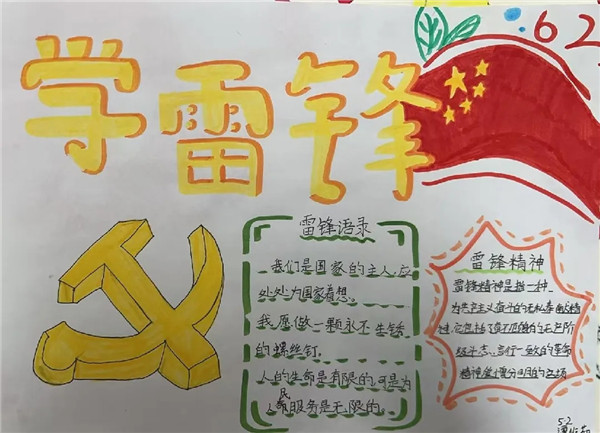 学雷锋
62
雷锋语录
我们是国家的主人,应
处处为国家着想。
我愿做一颗永不生锈
的螺丝钉.
人的生命是有限的,可是为
人民服务是无限的.
雷锋精神
雷锋精神是指一种
为共产主义奋斗的无私奉献精
阶
言行一致的革命
精神爱憎分明的
5.2